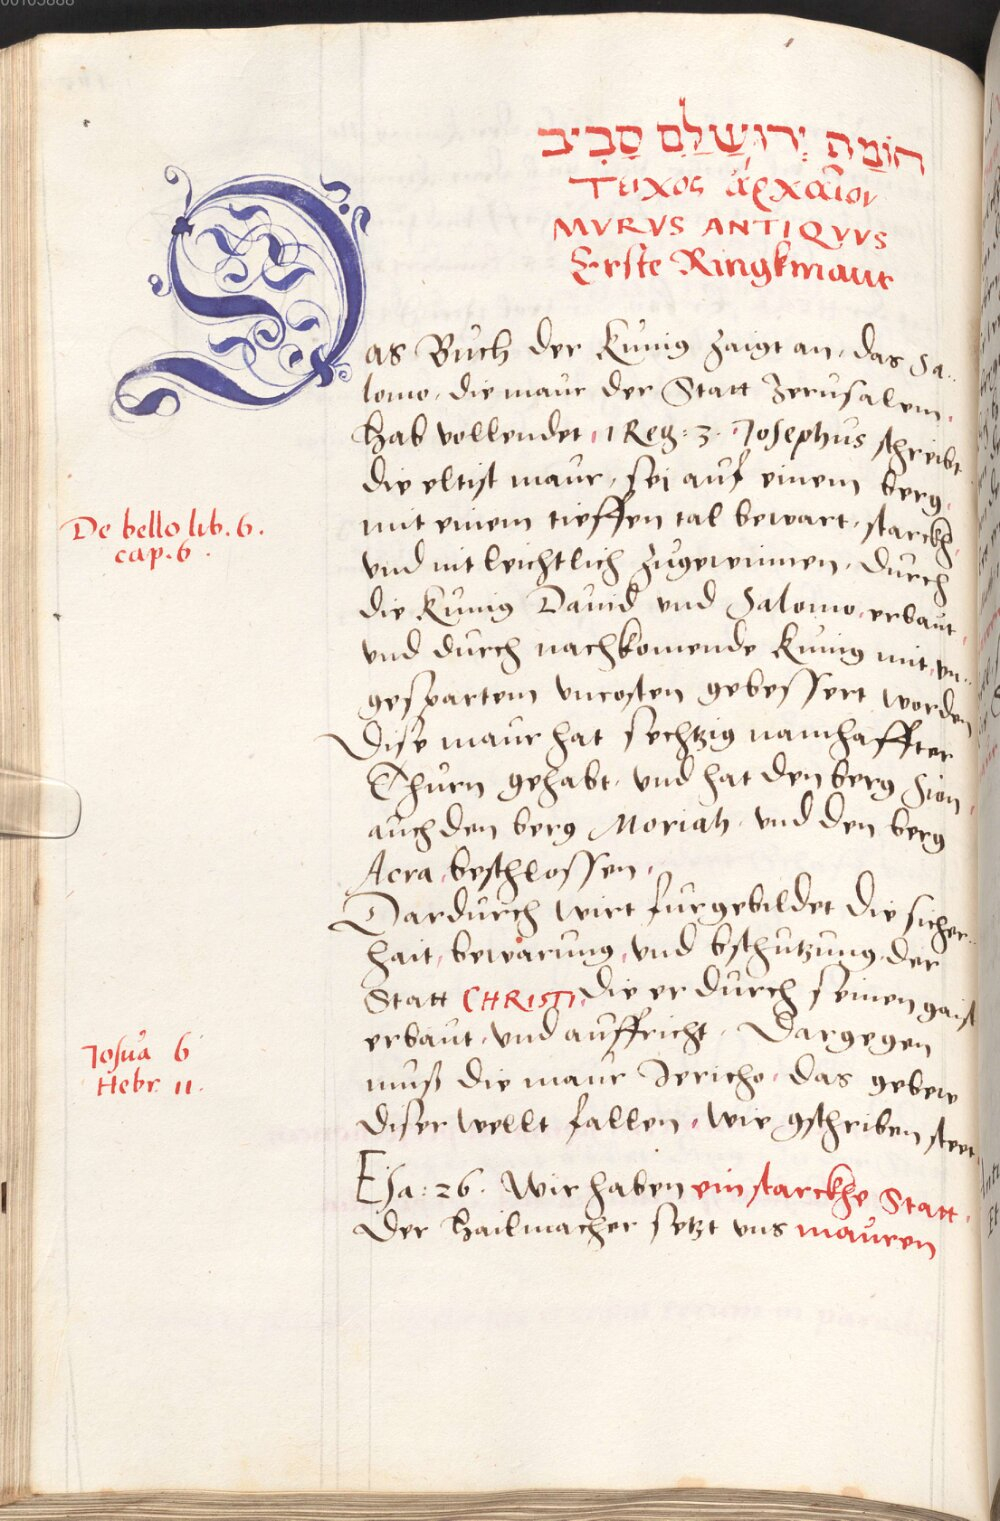 חוֹמַת יְרוּשָׁלַםִ סָבִיב
Τειχος ἀρχαῖον
MVRVS ANTIQVVS
Erste Ringkmaur
Das Buch der Kunig zaigt an, das Sa-
lomo, die maur der Statt Jerusalem,
hab vollendet, 1 Reg: 3. Josephus schreibt
die eltist maur, sej auf einem berg,
mit einem tieffen tal bewart, starckh,
vnd nit leichtlich zugewinnen, durch
die Kunig Dauid vnd Salomo, erbaut,
vnd durch nachkomende Kunig mit, vn-
gespartem vncosten gebessert worden
Dise maur hat sechtzig namhaffter
Thurn gehabt, vnd hat den berg Sion,
auch den berg Moriah, vnd den berg
Acra, beschlossen,
Dardurch wirt furgebildet die sicher-
hait, bewarung, vnd bschutzung, der
Statt CHRISTI, die er durch seinen gaist
erbaut, vnd auffricht, Dargegen
muß die maur Jericho, das gebew
diser wellt fallen, wie gschriben steet
Esa: 26. Wir haben ein starckhe Statt,
der hailmacher setzt vns mauren
De bello lib. 6.
cap. 6.
Josua 6
Hebr. 11.
00103888